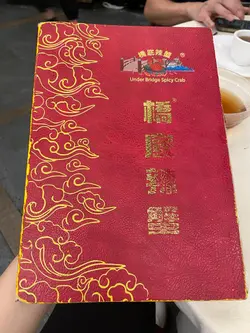 橋底辣蟹
®
Under Bridge Spicy Crab
橋®
底
辣
蟹